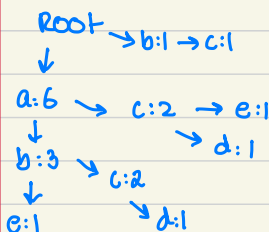 Root
→ b:1 → c:1
a:6 → c:2 → e:1
d:1
b:3
c:2
e:1
d:1